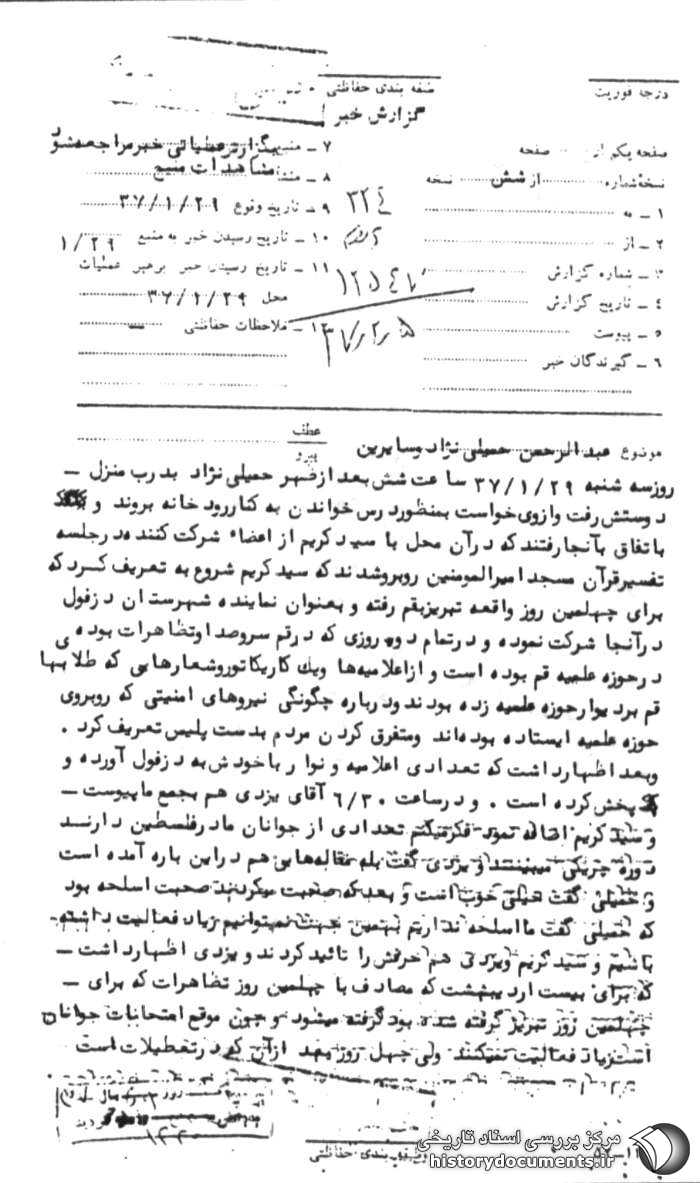 درجه فوریت
طبقه بندی حفاظتی
گزارش خبر
صفحه یکم از ........ صفحه
نسخه شماره ........ از شش نسخه
۱ ـ به
۲ ـ از
۳ ـ شماره گزارش
۴ ـ تاریخ گزارش
۵ ـ پیوست
۶ ـ گیرندگان خبر
۷ ـ منبع
۸ ـ منشأ مشاهدات منبع
۹ ـ تاریخ وقوع ۳۷/۱/۲۹
۱۰ ـ تاریخ رسیدن خبر به منبع ۱/۲۹
۱۱ ـ تاریخ رسیدن خبر برهبر عملیات
محل ۳۷/۱/۲۹
۱۲ ـ ملاحظات حفاظتی ـ
۳۲٤
عطف
پیرو
موضوع عبدالرحمن حمیلی نژاد وسایرین
روزسه شنبه ۳۷/۱/۲۹ ساعت شش بعدازظهر حمیلی نژاد بدرب منزل ـ
دوستش رفت وازوی خواست بمنظوردرس خواندن به کناررودخانه بروند و
باتفاق بآنجارفتندکه درآن محل با سیدکریم از اعضاء شرکت کننده درجلسه
تفسیرقرآن مسجدامیرالمومنین روبروشدندکه سیدکریم شروع به تعریف کردکه
برای چهلمین روز واقعه تبریزبقم رفته و بعنوان نماینده شهرستان دزفول
درآنجا شرکت نموده و درتمام دوره روزی که درقم سروصداوتظاهرات بوده وی
درحوزه علمیه قم بوده است و ازاعلامیه‌ها ویك کاریکاتوروشعارهایی که طلابها
قم بردیوارحوزه علمیه زده بودندودرباره چگونگی نیروهای امنیتی که روبروی
حوزه علمیه ایستاده بوده‌اند ومتفرق کردن مردم بدست پلیس تعریف کرد .
وبعداظهارداشت که تعدادی اعلامیه و نوار باخودش به دزفول آورده و
پخش کرده است . و درساعت ۶/۳۰ آقای یزدی هم بجمع ماپیوست ـ
وسیدکریم اضافه نمود فکرمیکنم تعدادی از جوانان مادرفلسطین دارند
دوره چریکی میبینند و یزدی گفت بله مقاله‌هایی هم دراین باره آمده است
و حمیلی گفت خیلی خوب است و بعدکه صحبت میکردند صحبت اسلحه بود
که حمیلی گفت مااسلحه نداریم بهمین جهت نمیتوانیم زیاد فعالیت داشته
باشیم و سیدکریم ویزدی هم حرفش را تائیدکردند و یزدی اظهارداشت ـ
که برای بیست اردیبهشت که مصادف با چهلمین روز تظاهرات که برای ـ
چهلمین روز تبریز گرفته شده بود گرفته میشود و چون موقع امتحانات جوانان
است زیاد فعالیت نمیکنند ولی چهل روز بعد ازآن که درتعطیلات است
طبقه بندی حفاظتی
مرکز بررسی اسناد تاریخی
historydocuments.ir